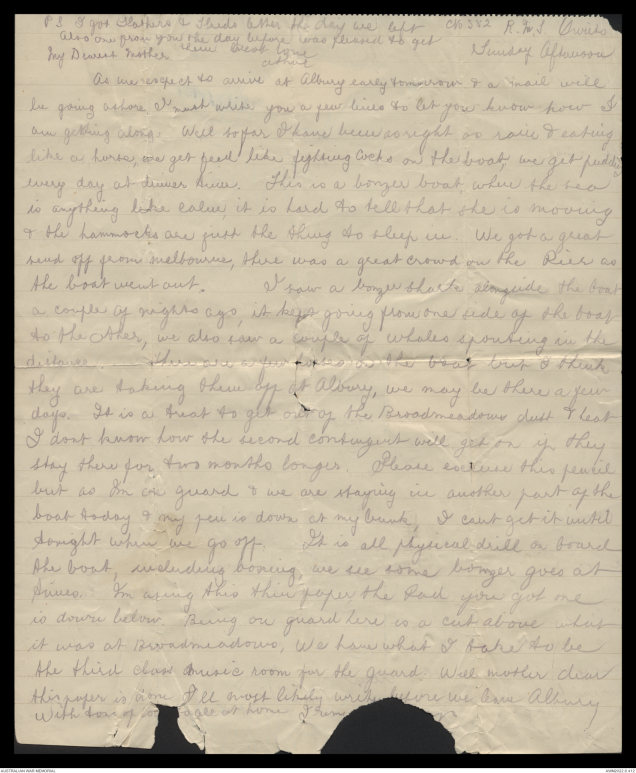 P S I got Fathers & Freds letter the day we left
also one from you the day before was pleased to get
them
No 382 R. M. S Orvieto
Sunday Afternoon
My Dearest Mother
As we expect to arrive at Albury early tomorrow & a mail will
be going ashore I must write you a few lines to let you know how I
am getting along. Well so far I have been as right as rain & eating
like a horse, we get feed like fighting cocks on the boat, we get pudding
every day at dinner time. This is a bonzer boat, when the sea
is anything like calm, it is hard to tell that she is moving
& the hammocks are just the thing to sleep in. We got a great
send off from Melbourne, there was a great crowd on the Pier as
the boat went out. I saw a bonzer shark alongside the boat
a couple of nights ago, it kept going from one side of the boat
to the other, we also saw a couple of whales spouting in the
distance. There are a few on the boat but I think
they are taking them off at Albury, we may be there a few
days. It is a treat to get out of the Broadmeadows dust & heat
I dont know how the second contingent will get on if they
stay there for two months longer. Please excuse this pencil
but as I'm on guard & we are staying in another part of the
boat today & my pen is down at my bunk, I cant get it until
tonight when we go off. It is all physical drill on board
the boat, including boxing, we see some bonzer goes at
times. I'm using this thin paper the pad you got me
is down below. Being on guard here is a cut above what
it was at Broadmeadows, We have what I take to be
the third class music room for the guard. Well mother dear
this paper is gone I'll most likely write before we leave Albury
With tons of love to all at home I
AUSTRALIAN WAR MEMORIAL